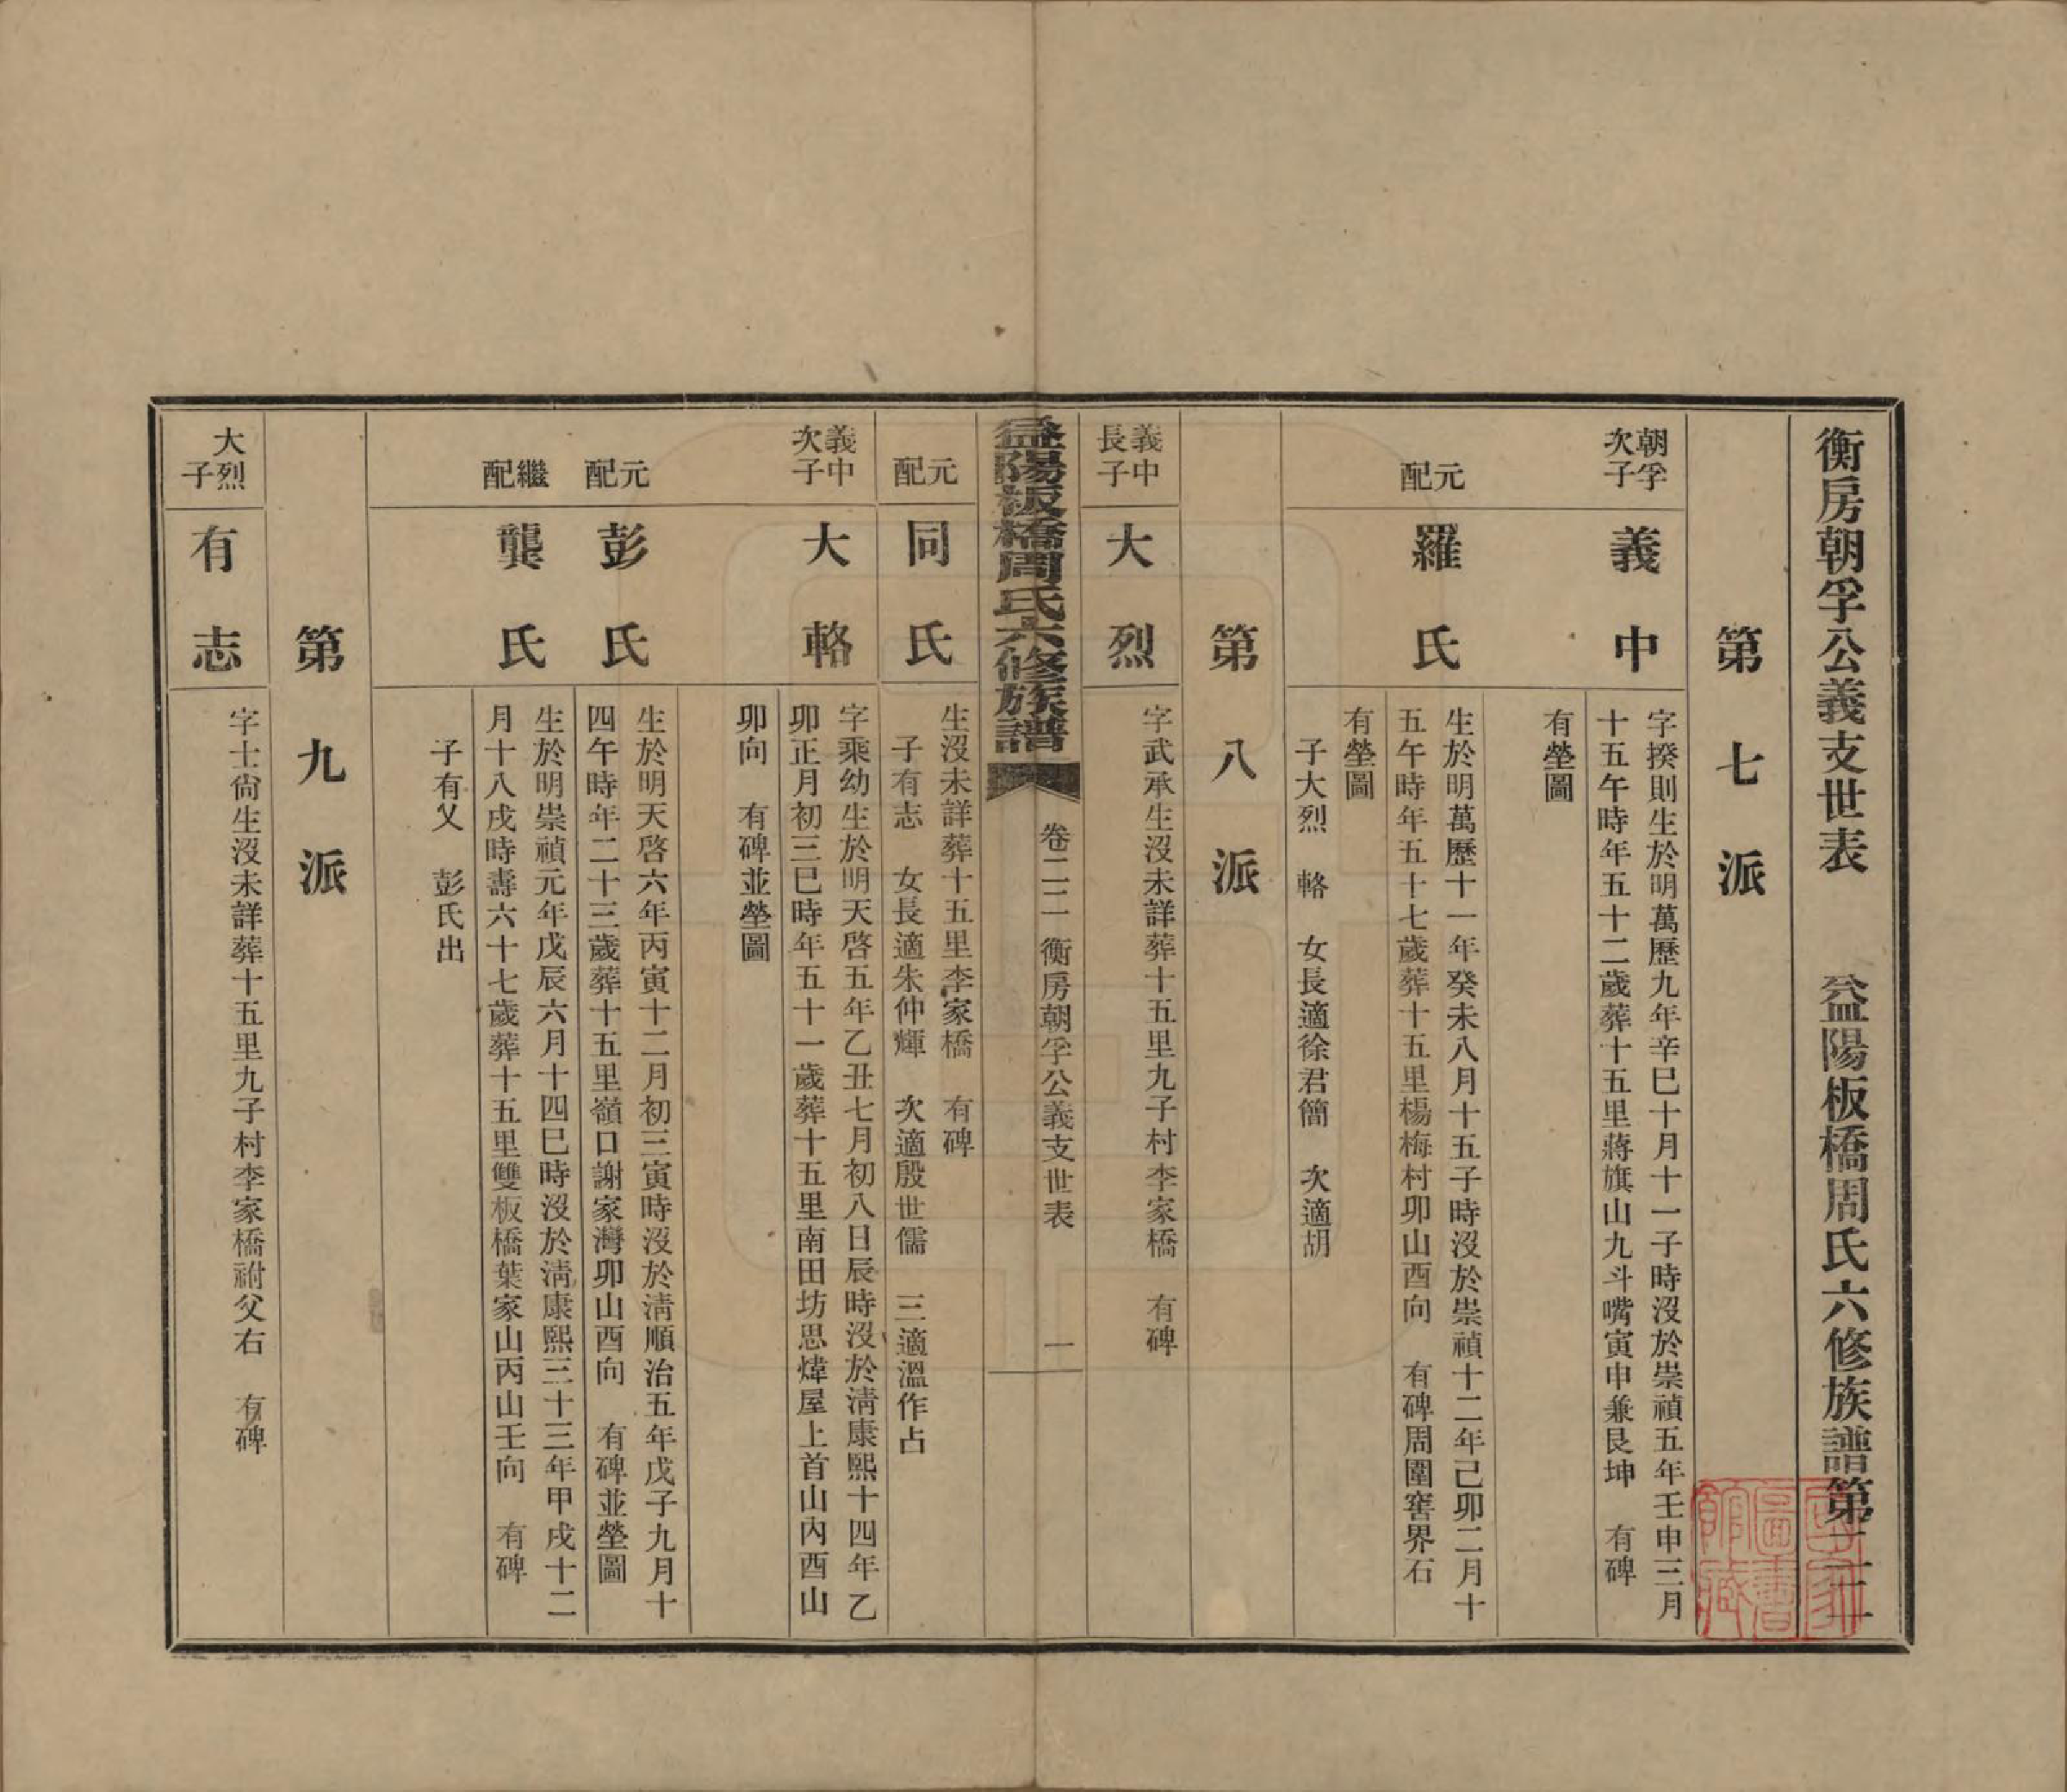 衡房朝孚公義支世表　益陽板橋周氏六修族譜第二二
第七派
朝孚次子
義中
字揆則生於明萬歷九年辛巳十月十一子時沒於崇禎五年壬申三月
十五午時年五十二歲葬十五里蔣旗山九斗嘴寅申兼艮坤　有碑
有塋圖
元配
羅氏
生於明萬歷十一年癸未八月十五子時沒於崇禎十二年己卯二月十
五午時年五十七歲葬十五里楊梅村卯山酉向　有碑周圍窖界石
有塋圖
子大烈　輅　女長適徐君簡　次適胡
第八派
義中長子
大烈
字武承生沒未詳葬十五里九子村李家橋　有碑
益陽板橋周氏六修族譜
卷二二　衡房朝孚公義支世表　一
元配
同氏
生沒未詳葬十五里李家橋　有碑
子有志　女長適朱仲輝　次適殷世儒　三適溫作占
義中次子
大輅
字乘幼生於明天啓五年乙丑七月初八日辰時沒於淸康熙十四年乙
卯正月初三巳時年五十一歲葬十五里南田坊思煒屋上首山內酉山
卯向　有碑並塋圖
元配
彭氏
生於明天啓六年丙寅十二月初三寅時沒於淸順治五年戊子九月十
四午時年二十三歲葬十五里嶺口謝家灣卯山酉向　有碑並塋圖
繼配
龔氏
生於明崇禎元年戊辰六月十四巳時沒於淸康熙三十三年甲戌十二
月十八戌時壽六十七歲葬十五里雙板橋葉家山丙山壬向　有碑
子有乂　彭氏出
第九派
大烈子
有志
字士尙生沒未詳葬十五里九子村李家橋祔父右　有碑
國家圖書館藏